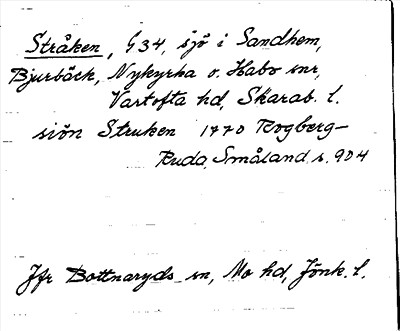 Stråken, G34, sjö i Sandhem,
Bjurbäck, Nykyrka o. Habo snr,
Vartofta hd, Skarab. l.
siön Struken 1770 Rogberg–
Ruda, Småland s. 904
Jfr Bottnaryds sn, Mo hd, Jönk. l.